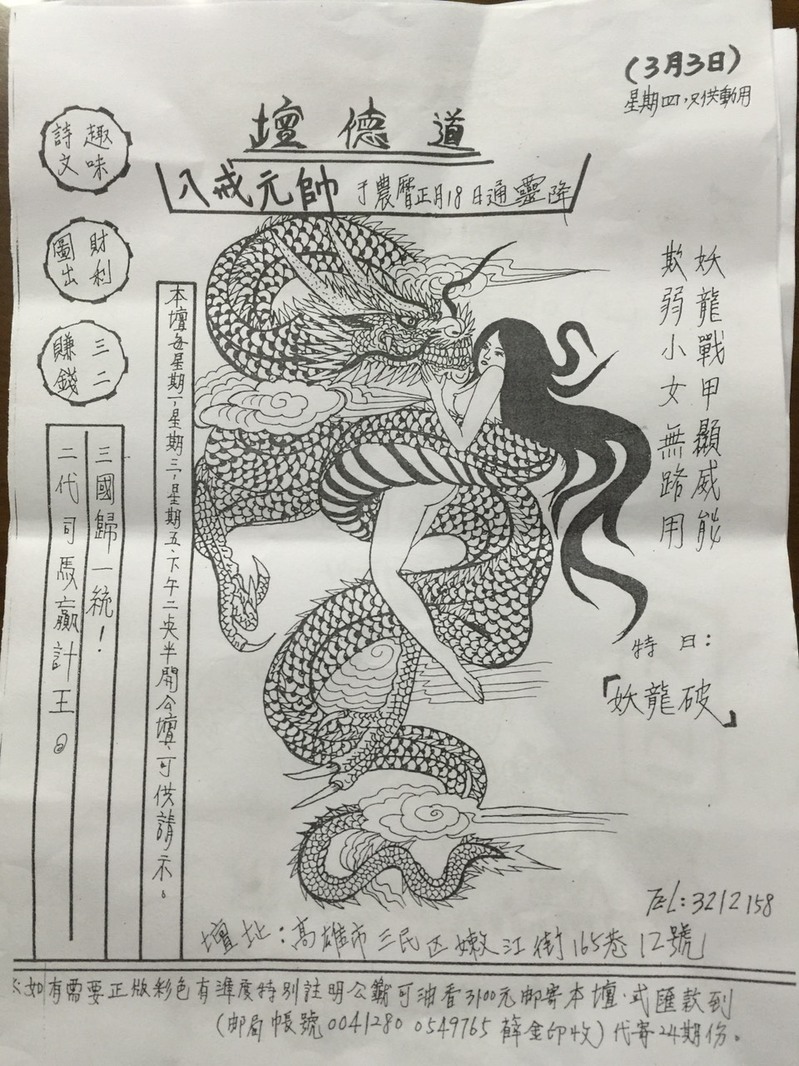 (3月3日)
星期四,只供動用
道德壇
八戒元帥 于農曆正月18日通靈降
趣味
詩文
財利
圖出
三二
賺錢
妖龍戰甲顯威能
欺弱小女無路用
特日:
「妖龍破」
本壇每星期一,星期三,星期五、下午二点半開令壇,可供請示。
三國歸一統!
二代司馬贏計王。
TEL:3212158
壇址:高雄市三民区嫩江街165巷12號
如有需要正版彩色有準度特別註明公籤可油香3100元邮寄本壇.式匯款到
(邮局帳號0041280 0549765 薛金印收)代寄24期份。